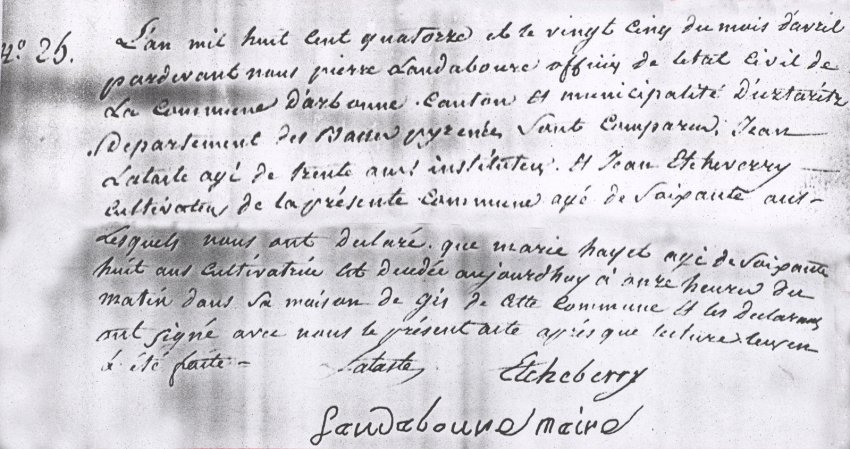 N.o 25. L'an mil huit cent quatorze et le vingt cinq du mois d'avril
pardevant nous pierre Laudaboure officié de létat Civil de
La Commune d'arbonne. Canton Et municipalité D'uztaritz
Departement des Basses pyrenées, Sont Comparus, Jean
Lataste agé de trente ans instituteur. Et Jean Etcheverry
Cultivateurs de la présente Commune agé de Soixante ans
Lesquels nous ont declaré. que marie hayet agé de Soixante
huit ans Cultivatrice Est decedée aujourdhuy à onze heures du
matin dans Sa maison de gis de cette Commune Et les declarans
ont signé avec nous le présent acte après que lecture leur en
à été faite
Lataste Etcheberry
Laudaboure maire